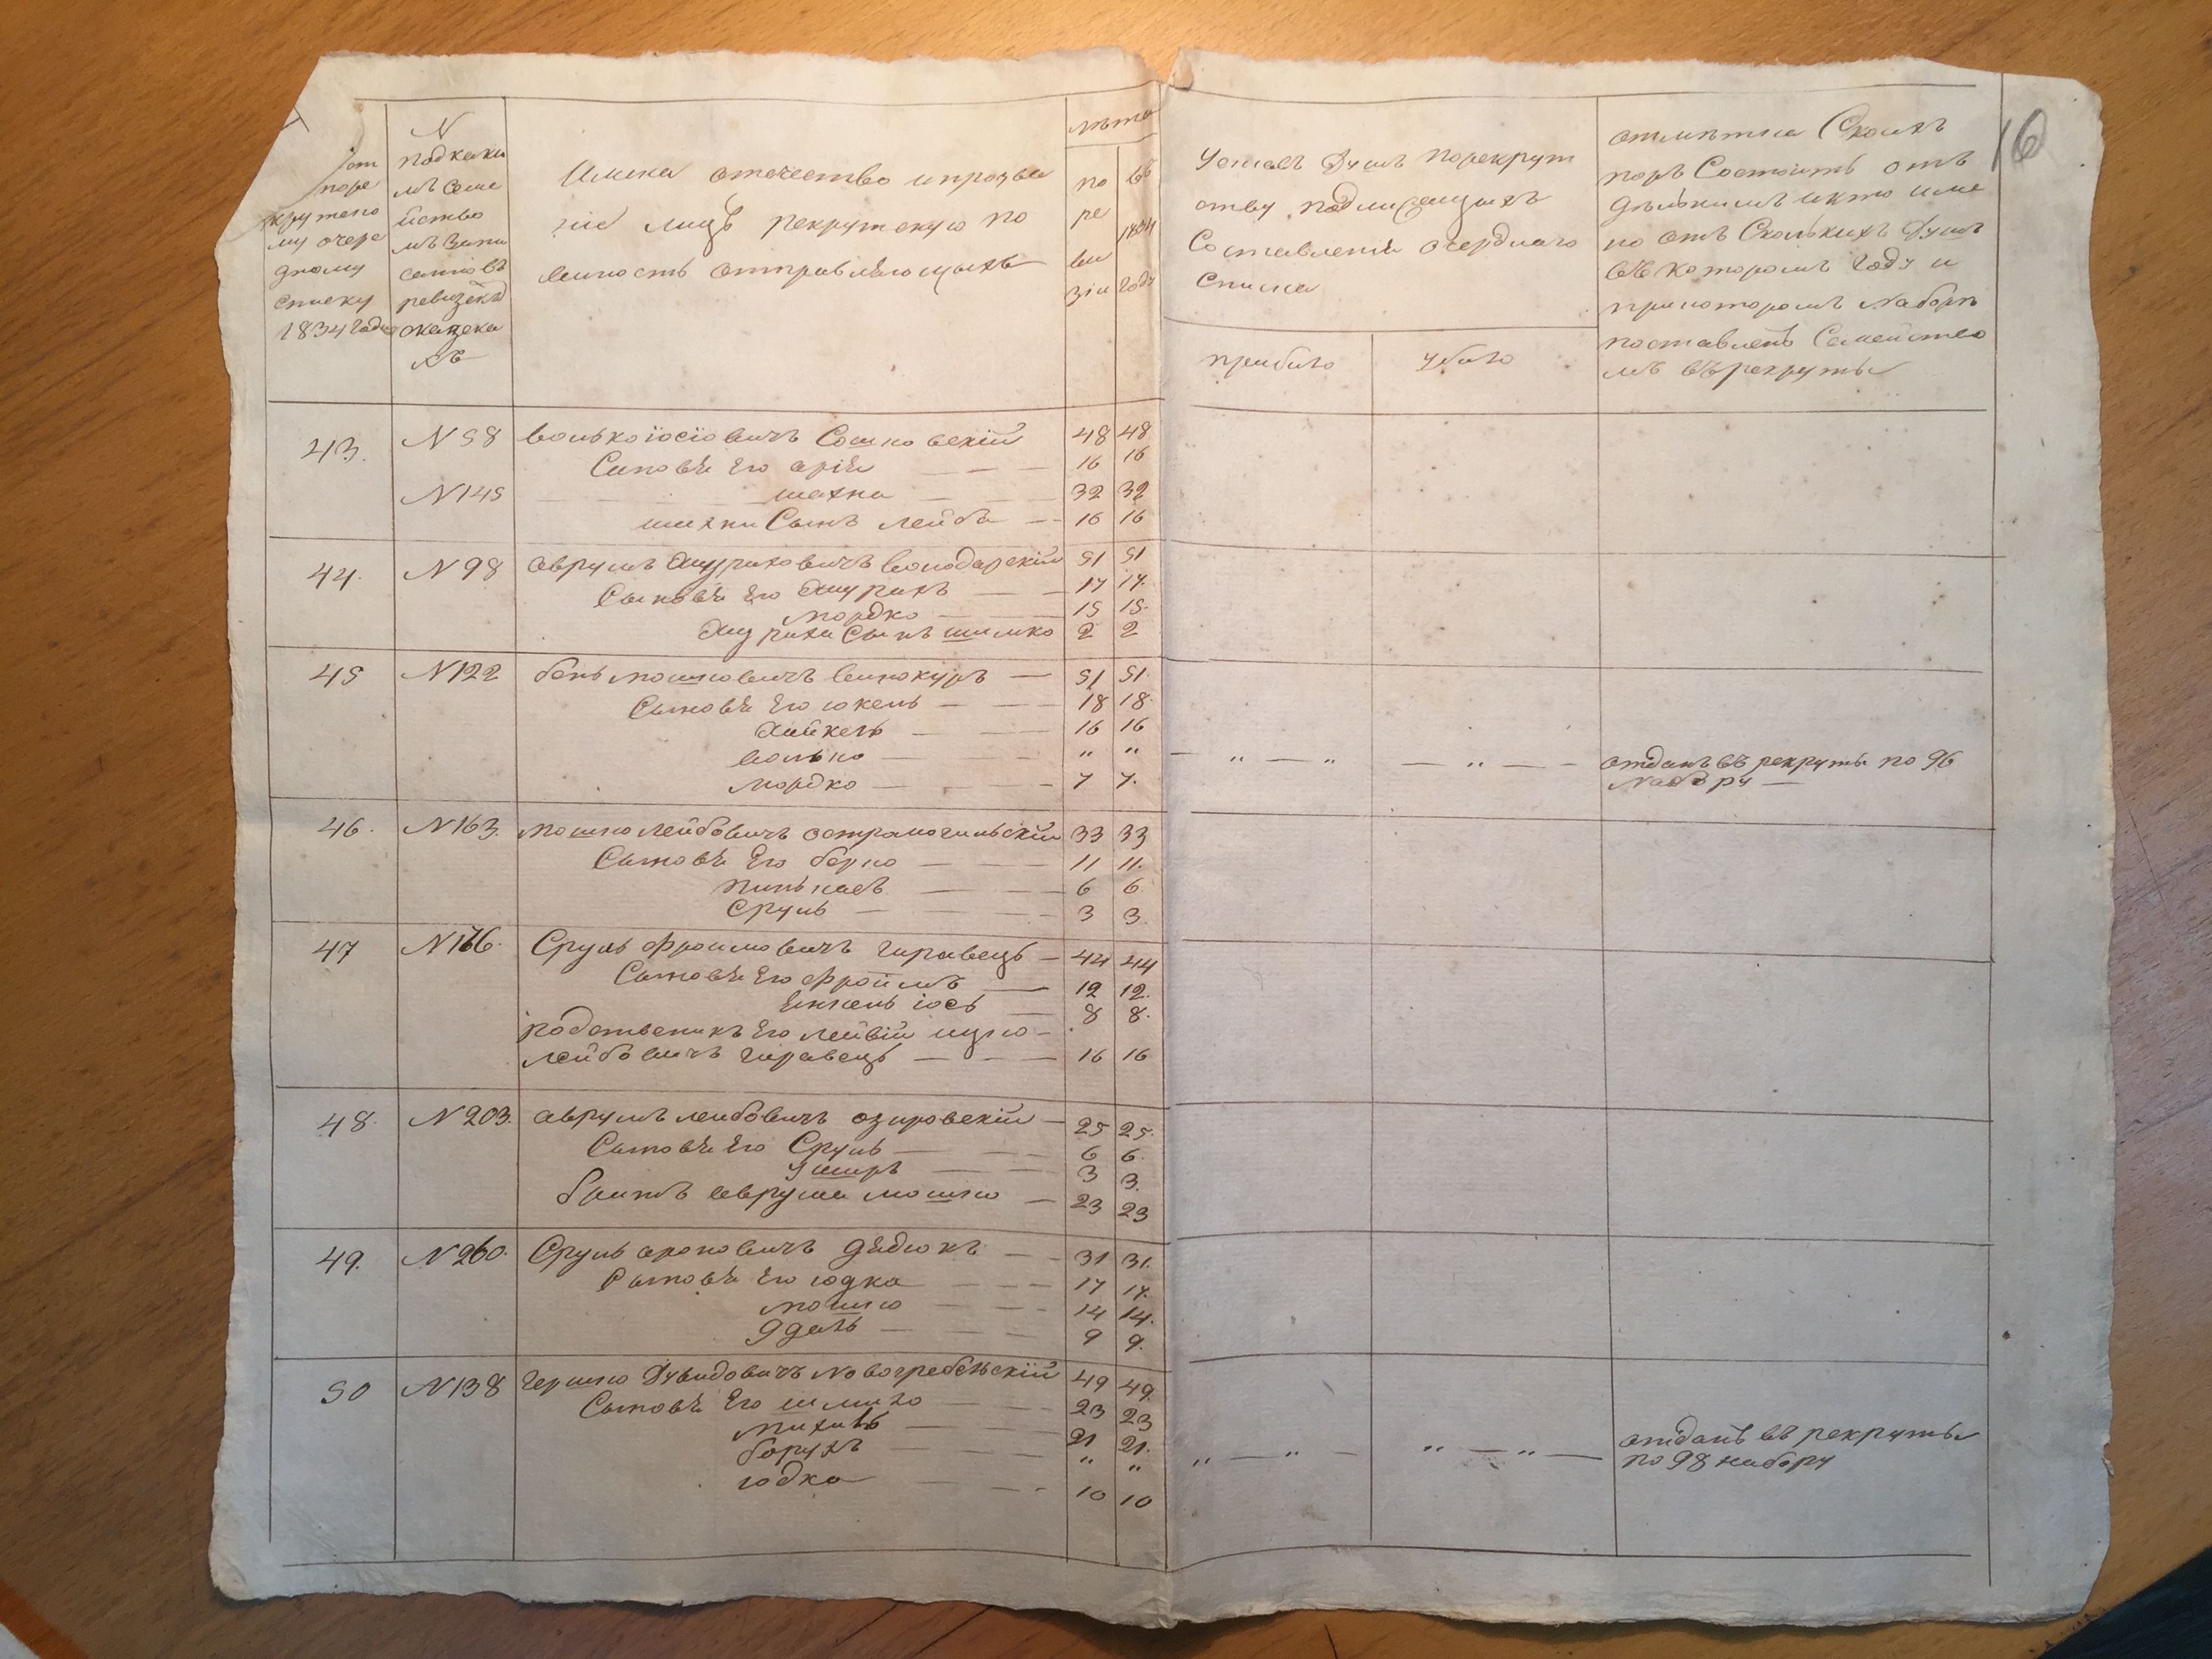 16
N
подкаки
мъ семе
йство
мъ запи
санъ въ
ревизск
сказка
хъ
поре
крутско
му очере
дному
списку
1834 года
Имена отечество и прозва
ніе лицъ рекрутскую по
винность отправляющыхъ
лѣта
по
ре
ви
зіи
въ
1834
году
Уставъ Душъ порекрут
ству подлижащыхъ
Составленія очердного
Списка
прибыло
убыло
отмѣтка Скоихъ
поръ Состоитъ отъ
дѣльнимъ и кто име
но отъ Сколькихъ Душъ
въ которомъ Году и
прикоторомъ Наборѣ
поставленъ Семейство
мъ въ рекруты
43. N 58 волько іосіовичъ Сошновскій 48 48
Сыновья Его арія 16 16
N 145 шахна 32 32
шахни Сынъ лейба 16 16
44. N 98 аврумъ Хунриковичъ володарскій 51 51
Сыновья Его 17 17.
мордко 15 15.
Сынъ шимко 2 2
45 N 122 бень мошковичъ винокуръ 51 51.
Сыновья Его юкель 18 18.
Хайкель 16 16
волько " " — " — " — " — отданъ въ рекруты по 96
Набору —
мордко 7 7.
46. N 163. мошко лейбовичъ остромогильскій 33 33
Сыновья Его берко 11 11.
пинькасъ 6 6.
Сруль 3 3.
47 N 176. Сруль фроимовичъ гиравецъ 44 44
Сыновья Его фроимъ 12 12.
Енкель іось 8 8.
родственикъ Его лейвій ицко
лейбовичъ гиравецъ 16 16
48. N 203. аврумъ лейбовичъ озировскій 25 25.
Сыновья Его Сруль 6 6.
Уширъ 3 3.
братъ аврума мошко 23 23
49. N 260. Сруль ароновичъ дѣдюкъ 31 31.
Сыновья Его юдка 17 17.
мошко 14 14.
9 9.
50 N 138 гершко Дувидовичъ Новогребельскій 49 49.
Сыновья Его шмилю 23 23
михиль 21 21.
борухъ " " " — " — " — " — отданъ въ рекруты
по 98 набору
юдка 10 10